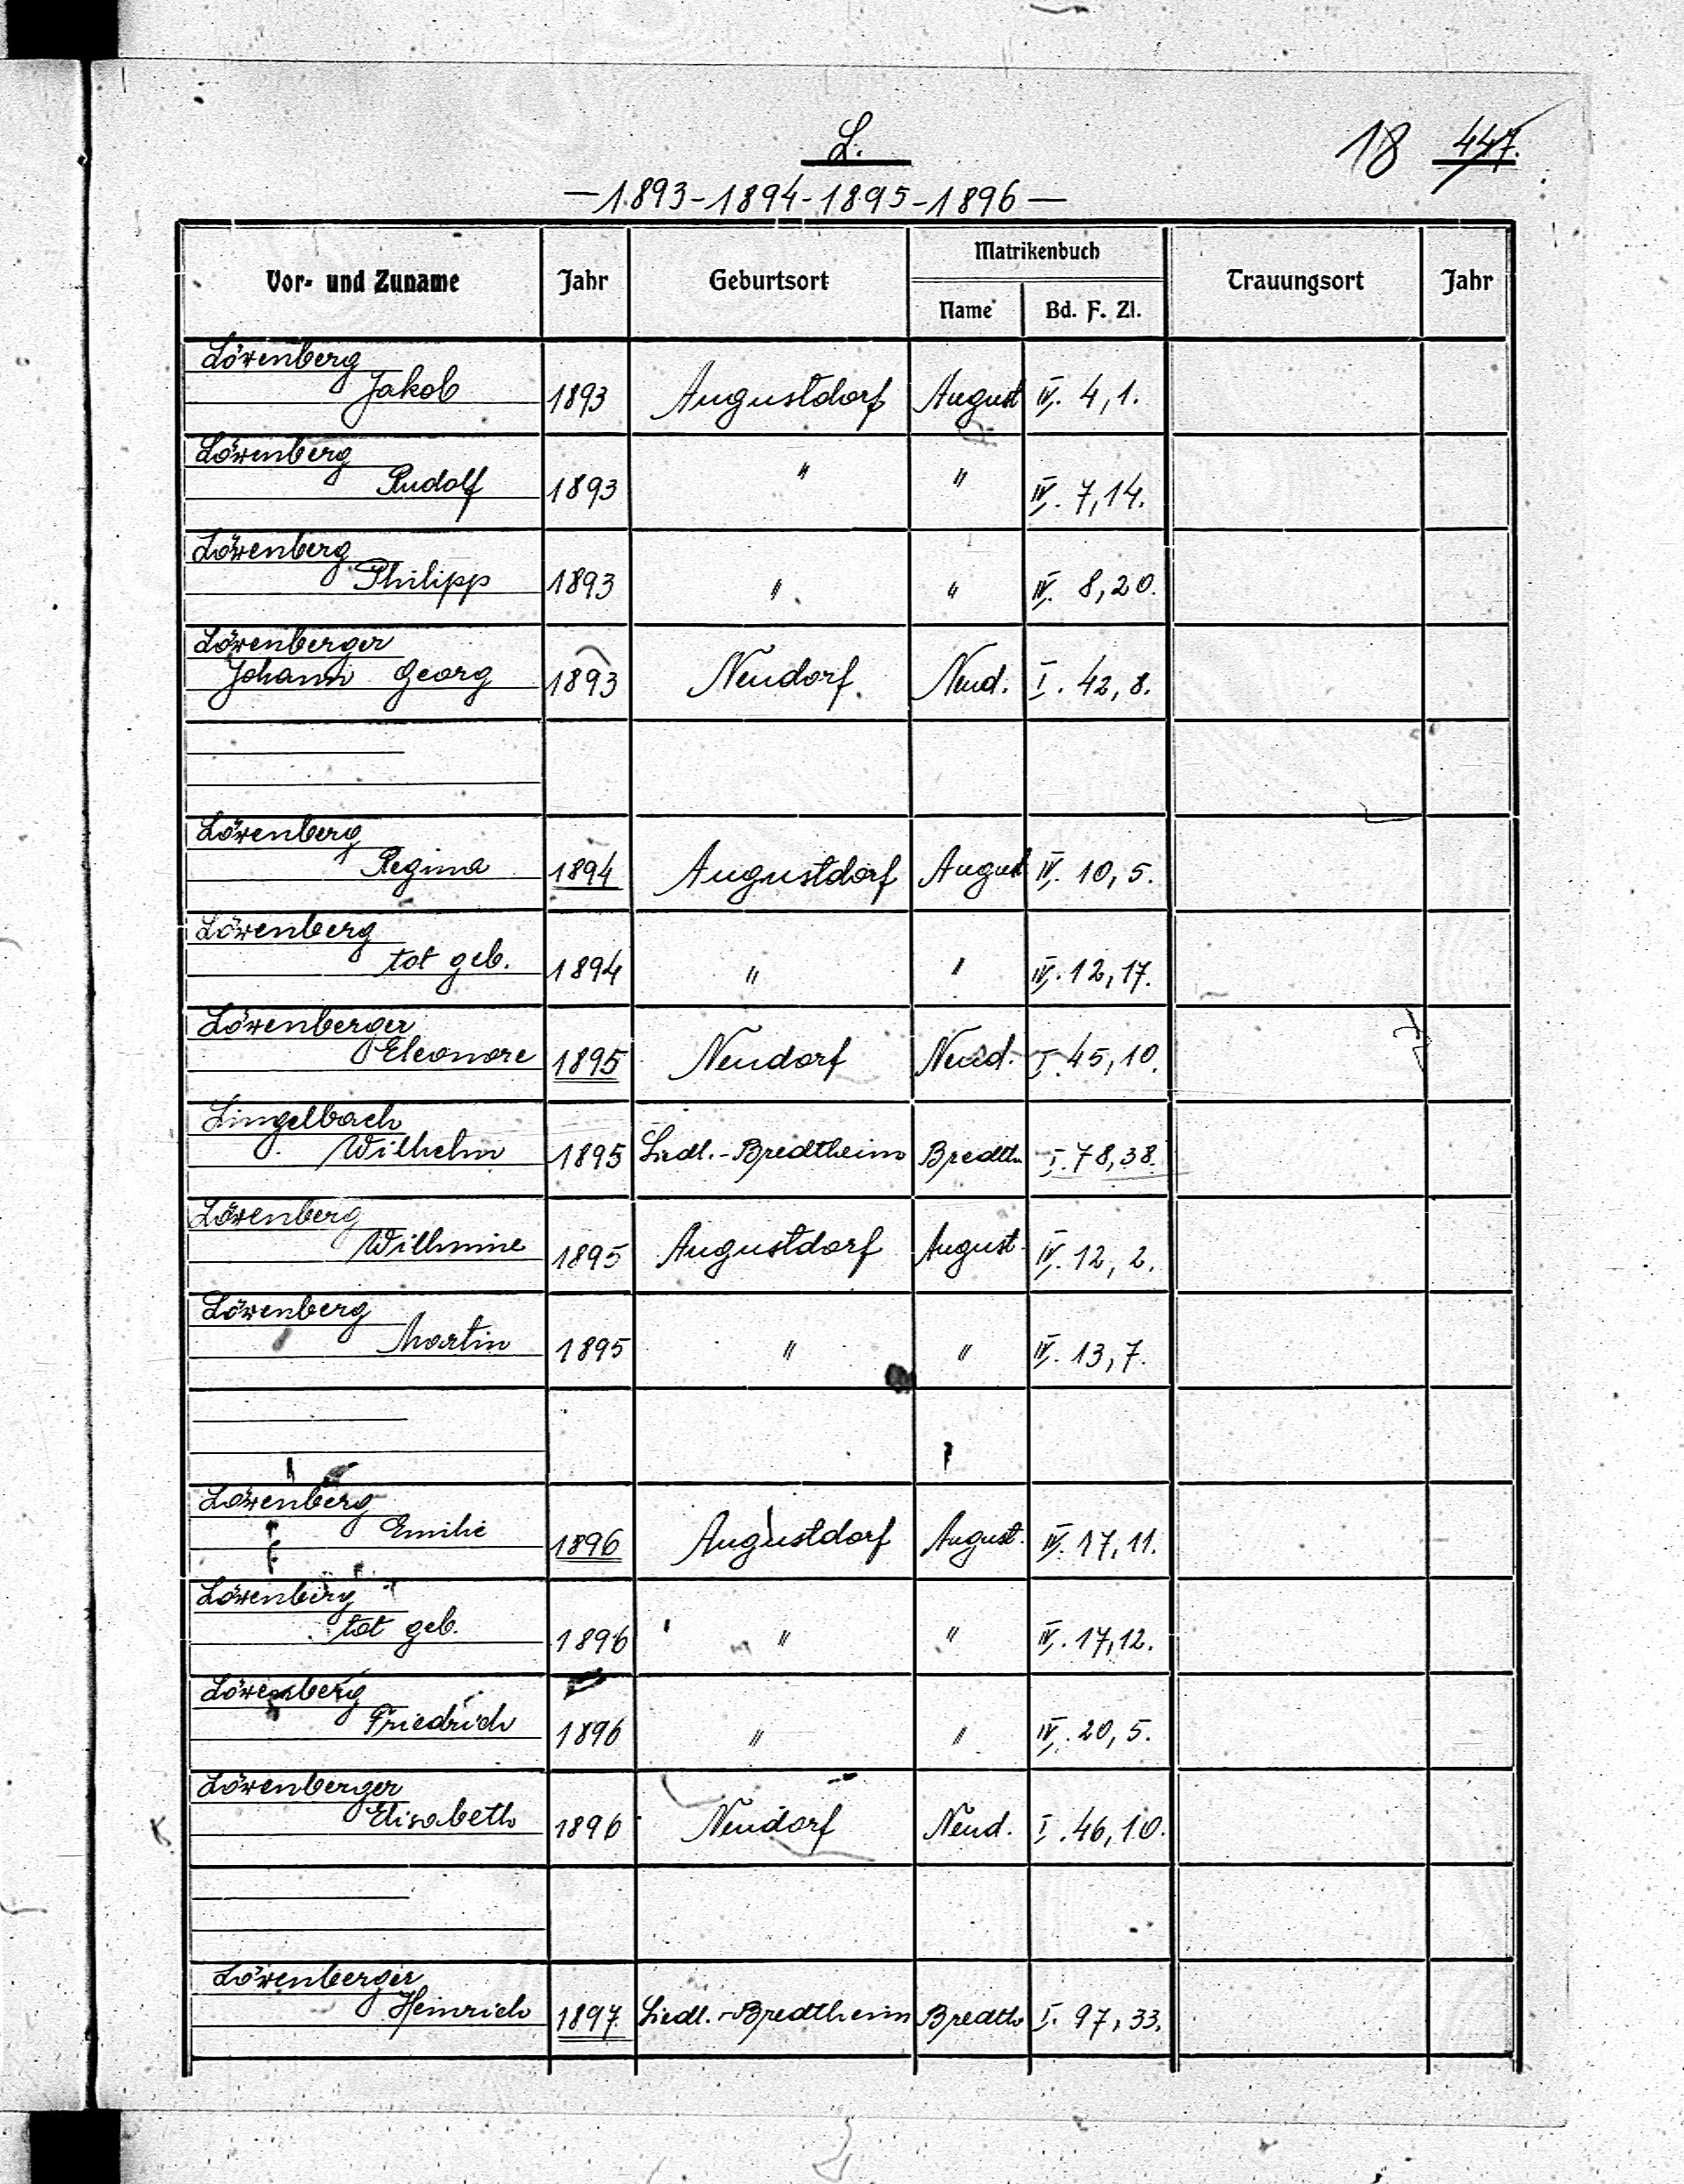 L.
18 447.
—1893-1894-1895-1896—
Vor- und Zuname Jahr Geburtsort Matrikenbuch Trauungsort Jahr
Name Bd. F. Zl.
Löwenberg
Jakob 1893 Augustdorf August IV. 4,1.
Löwenberg
Rudolf 1893 " " IV. 7,14.
Löwenberg
Philipp 1893 " " IV. 8,20.
Löwenberger
Johann Georg 1893 Neudorf. Neud. I. 42,8.
Löwenberg
Regina 1894 Augustdorf August IV. 10,5.
Löwenberg
tot geb. 1894 " " IV. 12,17.
Löwenberger
Eleonore 1895 Neudorf Neud. I. 45,10.
Lingelbach
Wilhelm 1895 Siedl.-Bredtheim Bredth I. 78,38.
Löwenberg
Wilhmine 1895 Augustdorf August. IV. 12,2.
Löwenberg
Martin 1895 " " IV. 13,7.
Löwenberg
Emilie 1896 Augustdorf August. IV. 17,11.
Löwenberg
tot geb. 1896 " " IV. 17,12.
Löwenberg
Friedrich 1896 " " IV. 20,5.
Löwenberger
Elisabeth 1896 Neudorf Neud. I. 46,10.
Löwenberger
Heinrich 1897. Siedl.-Bredtheim Bredth I. 97,33.